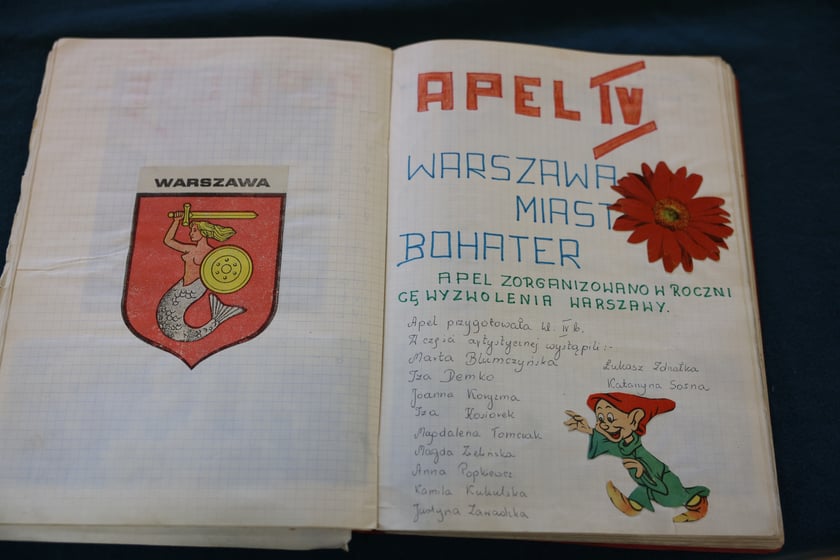 WARSZAWA
APEL IV
WARSZAWA
MIAST
BOHATER
APEL ZORGANIZOWANO W ROCZNI
CĘ WYZWOLENIA WARSZAWY.
Apel przygotowała kl. IV b.
W części artystycznej wystąpili:-
Marta Blumczyńska
Iza Demko
Joanna Koryzma
Iza Kosiorek
Magdalena Tomczak
Magda Zielińska
Anna Popkiewicz
Kamila Kukulska
Justyna Zawadzka
Łukasz
Katarzyna Sosna